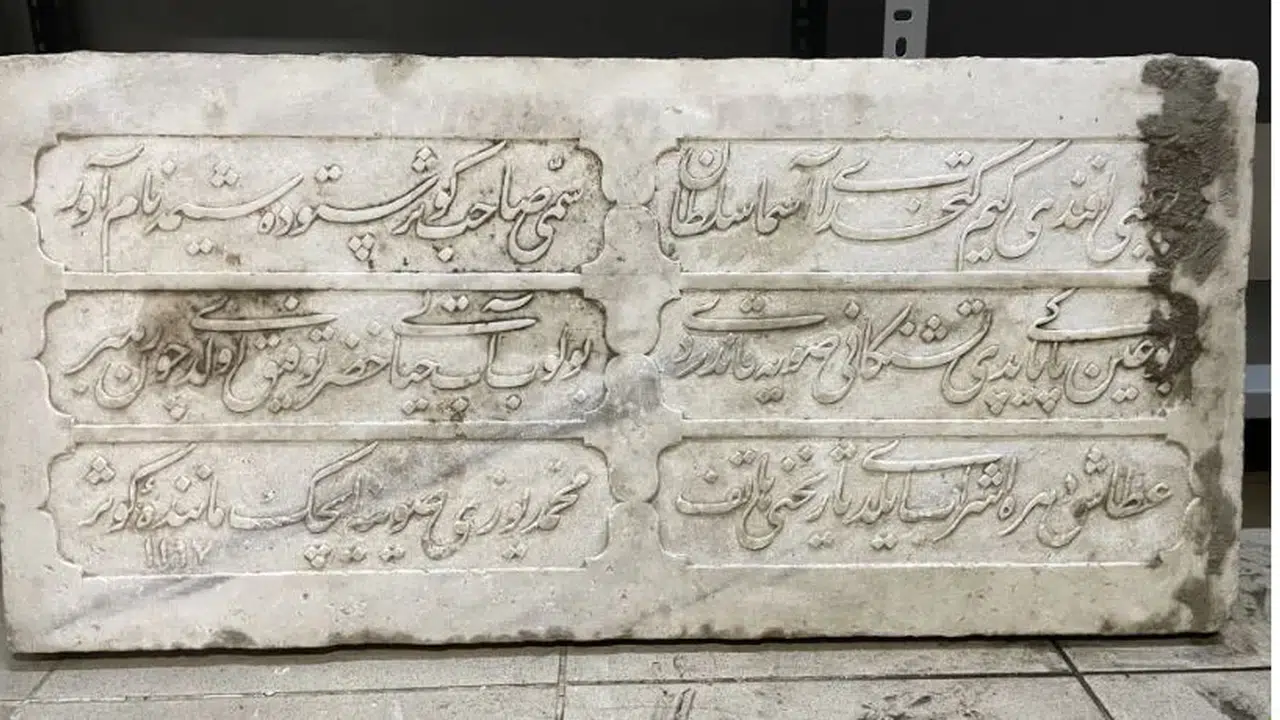 افندی کیم کتخدای اسما سلطان
سمی صاحب کوثر ستوده شیمه نام آور
بو عین پاکی یاپدی تشنکانی صویه قاندردی
بولوب آب حیاتی خضر توفیق اولدی چون رهبر
عطاش دهره اشراب ایلدی تاریخنی هاتف
محمد یوزی صوینه ایچک ماننده کوثر
١١٩٧